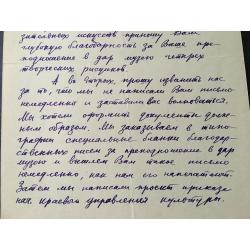 зительных искусств приношу Вам
глубокую благодарность за Ваше пре-
подношение в дар музею четырех
творческих рисунков.
А во вторых, прошу извинить нас
за то, что мы не написали Вам письмо
немедленно и заставили вас волноваться.
Мы хотели оформить документы долж-
ным образом. Мы заказываем в типо-
графии специальные бланки благодар-
ственных писем за преподношение в дар
музею и вышлем Вам такое письмо
немедленно, как нам его напечатают.
Затем мы написали проект приказа
на краевом управлении культуры.